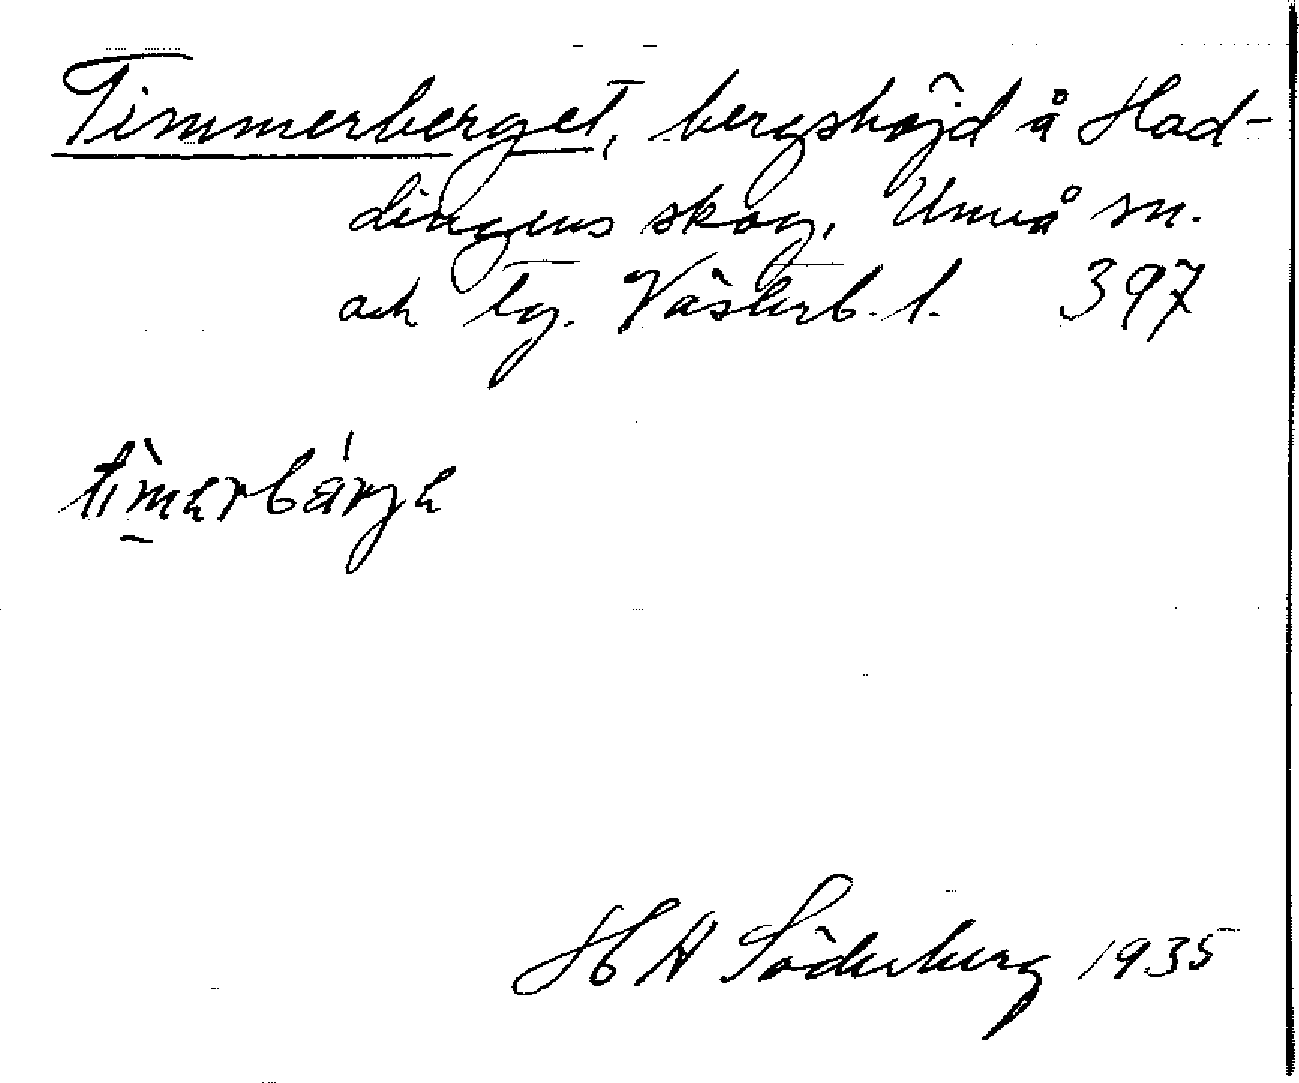 Timmerberget, bergshöjd å Had-
dingens skog, Umeå sn.
och tg. Västerb. l. 397
H A Söderberg 1935